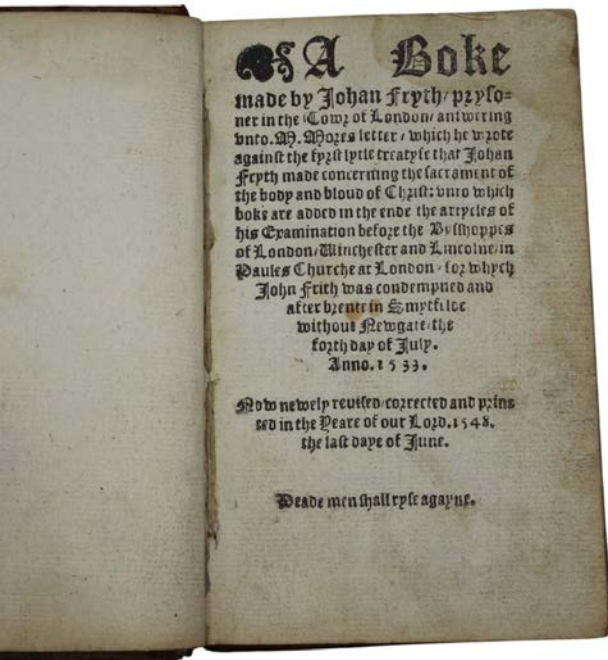 A Boke
made by Johan Fryth/ pryso=
ner in the Towr of London/ answering
vnto. M. Mores letter/ which he wrote
against the fyrst lytle treatyse that Johan
Fryth made concerning the sacrament of
the body and bloud of Christ: vnto which
boke are added in the ende the artycles of
his Examination before the Bysshoppes
of London/ Winchester and Lincolne/ in
Paules Churche at London/ for whych
John Frith was condempned and
after brente in Smytfilde
without Newgate/ the
forth day of July.
Anno. 1533.
Now newely reuised/ corrected and prins
ted in the Yeare of our Lord. 1548.
the last daye of June.
Deade men shall ryse agayne.